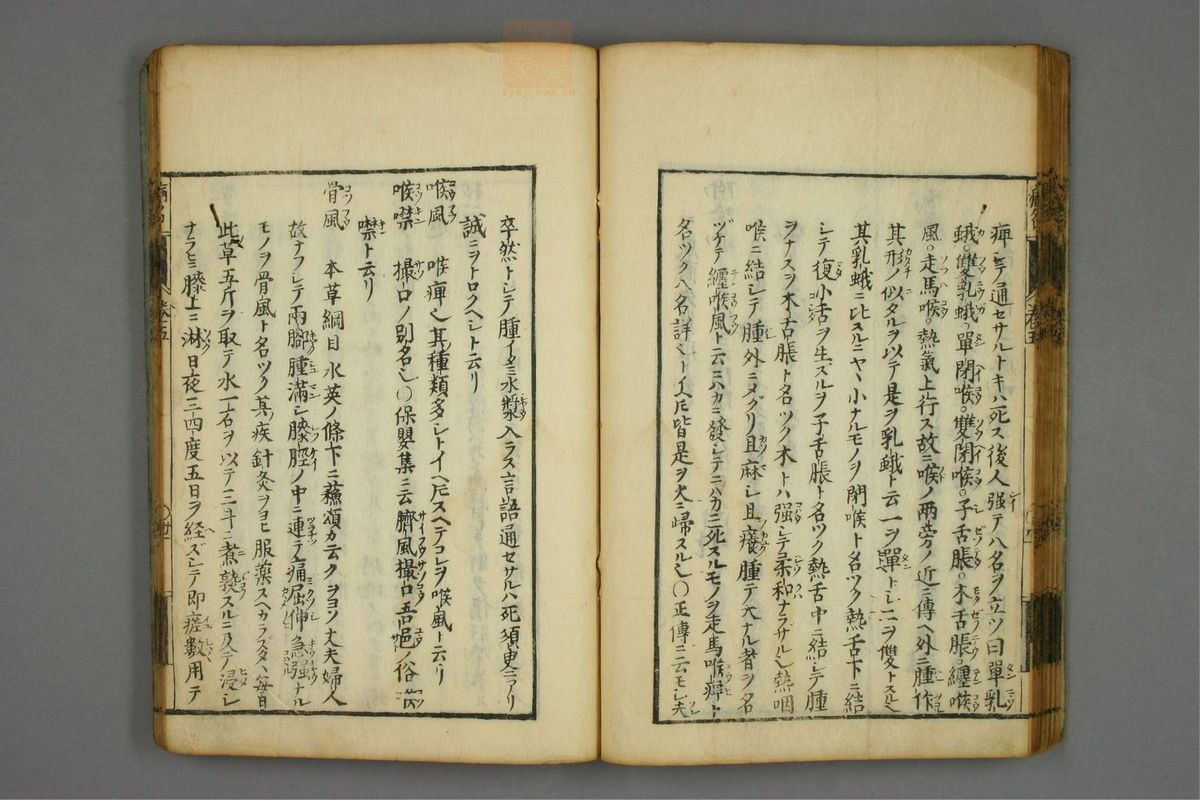 痺シテ通セサルトキハ死ス後人強テ八名ヲ立ツ曰單乳
蛾。雙乳蛾。單閉喉。雙閉喉。子舌脹。木舌脹。纏喉
風。走馬喉。熱氣上行ス故ニ喉ノ两旁ノ近ニ傳ヘ外ニ腫作
其形ノ似タルヲ以テ是ヲ乳蛾ト云一ヲ單トシ二ヲ雙トスル
其乳蛾ニ比スルニヤヽ小ナルモノヲ閉喉ト名ツク熱舌下ニ結
シテ復小舌ヲ生スルヲ子舌脹ト名ツク熱舌中ニ結シテ腫
ヲナスヲ木舌脹ト名ツク木トハ强シテ柔和ナラサル熱咽
喉ニ結シテ腫外ニメグリ且麻シ且癢腫テ大ナル者ヲ名
ヅケテ纏喉風ト云ニハカニ發シテニハカニ死スルモノヲ走馬喉痺ト
名ツク八名詳トイヘ𪜈皆是ヲ火ニ歸スル〇正傳ニ云モシ夫
卒然トシテ腫イタミ水漿入ラス言語通セサルハ死須臾ニアリ
誠ニヲトロクヘシト云リ
喉風 喉痺其種類多シトイヘ𪜈スヘテコレヲ喉風ト云リ
喉噤 撮口ノ別名〇保嬰集ニ云臍風撮口吾邑俗
噤ト云リ
骨風 本草綱目水英ノ條下ニ蘓頌カ云クヲヨソ丈夫婦人
故ナフシテ两脚腫滿シ膝脛ノ中ニ連テ痛屈伸急强ナル
モノヲ骨風ト名ツク其疾針灸ヲヨヒ服藥スヘカラズタヽ每日
此草五斤ヲ取テ水一石ヲ以テ三斗ニ煮熟スルニ及テ浸シ
ナラヒニ膝上ニ淋日夜三四度五日ヲ経ズシテ即瘥數用テ